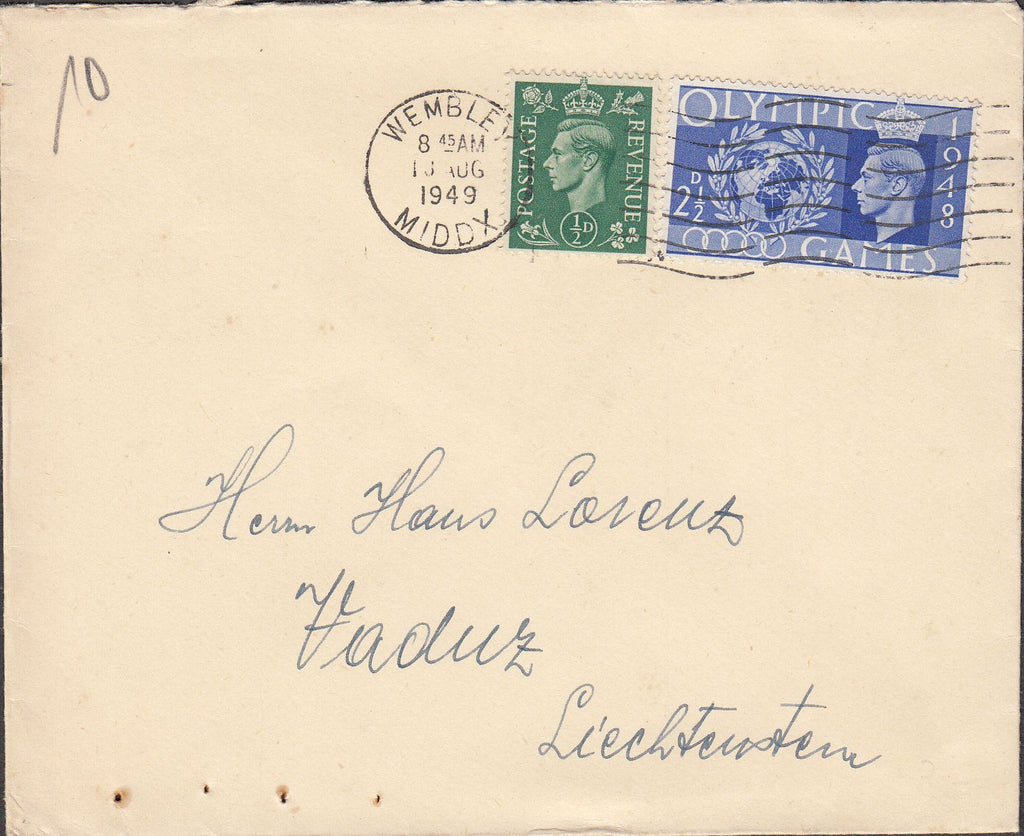 10
WEMBLEY
8 45 AM
AUG
1949
MIDDX
POSTAGE
REVENUE
½D
OLYMPIC
1948
2½D
GAMES
Herrn Hans Lorenz
Vaduz
Liechtenstein